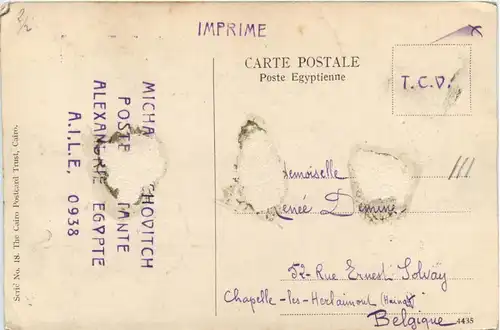 2/2
IMPRIME
CARTE POSTALE
Poste Egyptienne
T.C.V.
MICHA CHOVITCH
POSTE TANTE
ALEXANDRIE EGYPTE
A.I.L.E, 0938
Serie No. 18. The Cairo Postcard Trust, Cairo.
emoiselle
enée Demine
52-Rue Ernest Solvay
Chapelle-lez-Herlaimont (Hainaut)
Belgique
4435